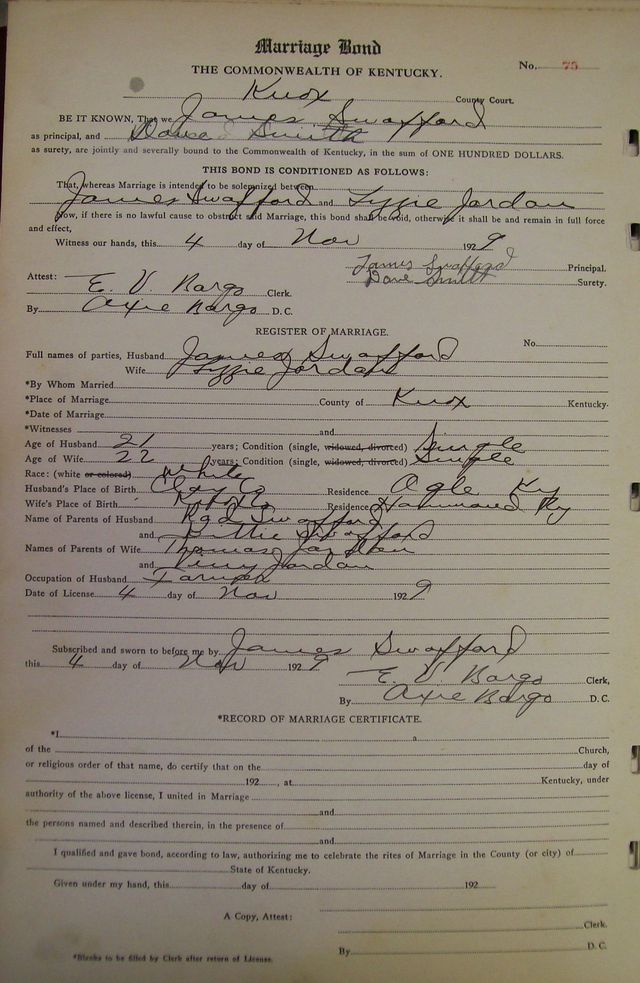 Marriage Bond
No. 75
THE COMMONWEALTH OF KENTUCKY.
Knox County Court.
BE IT KNOWN, That we James Swafford
as principal, and Dave Smith
as surety, are jointly and severally bound to the Commonwealth of Kentucky, in the sum of ONE HUNDRED DOLLARS.
THIS BOND IS CONDITIONED AS FOLLOWS:
That, whereas Marriage is intended to be solemnized between
James Swafford and Lyzzie Jordan
Now, if there is no lawful cause to obstruct said Marriage, this bond shall be void, otherwise it shall be and remain in full force
and effect,
Witness our hands, this 4 day of Nov 1929
James Swafford Principal.
Dave Smith Surety.
Attest: E. V. Bargo Clerk.
By Axie Bargo D. C.
REGISTER OF MARRIAGE.
No.
Full names of parties, Husband James Swafford
Wife Lyzzie Jordan
*By Whom Married
*Place of Marriage County of Knox Kentucky.
*Date of Marriage
*Witnesses and
Age of Husband 21 years; Condition (single, widowed, divorced) Single
Age of Wife 22 years; Condition (single, widowed, divorced) Single
Race: (white or colored) White
Husband's Place of Birth Clay Co Residence Ogle Ky
Wife's Place of Birth Knox Co Residence Hammond Ky
Name of Parents of Husband Swafford
and Swafford
Names of Parents of Wife Thomas Jordan
and Jordan
Occupation of Husband Farmer
Date of License 4 day of Nov 1929
Subscribed and sworn to before me by James Swafford
this 4 day of Nov 1929
E. V. Bargo Clerk,
By Axie Bargo D. C.
*RECORD OF MARRIAGE CERTIFICATE.
*I a
of the Church,
or religious order of that name, do certify that on the day of
192 , at Kentucky, under
authority of the above license, I united in Marriage
and
the persons named and described therein, in the presence of
and
I qualified and gave bond, according to law, authorizing me to celebrate the rites of Marriage in the County (or city) of
State of Kentucky.
Given under my hand, this day of 192
A Copy, Attest:
Clerk.
By D. C.
*Blanks to be filled by Clerk after return of License.